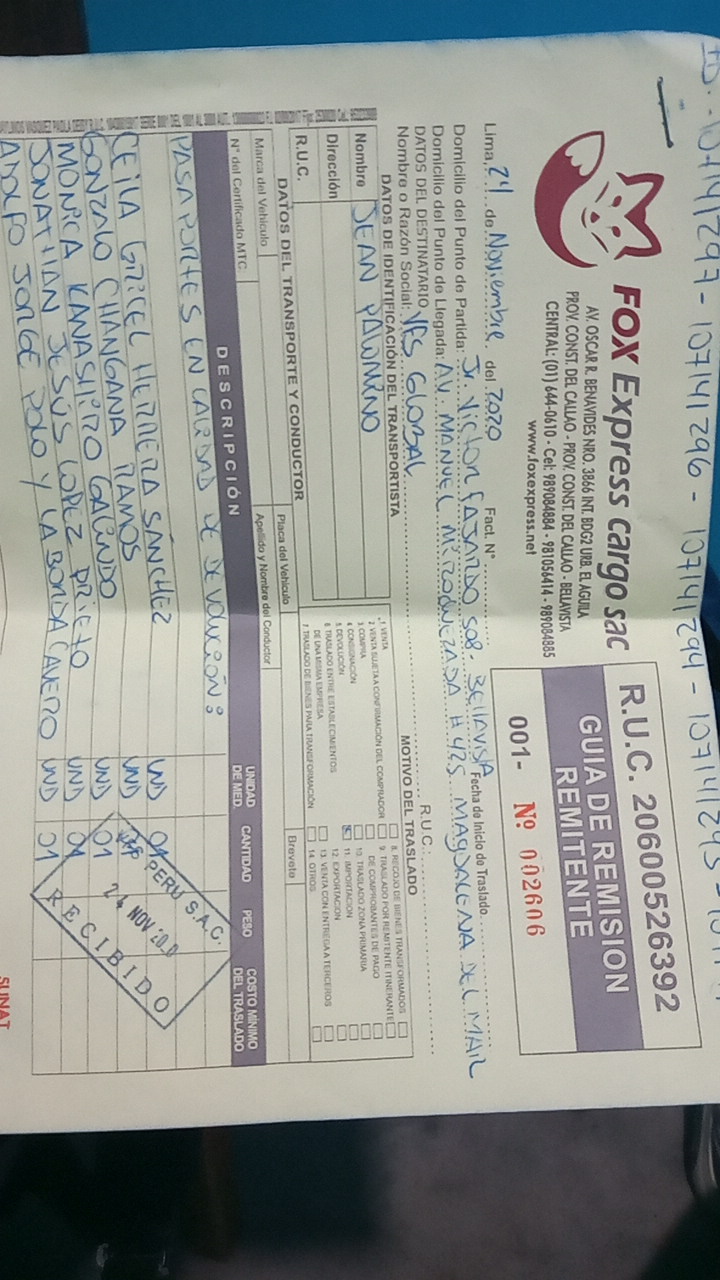 ID: 107141297 - 107141296 - 107141294 - 107141295 -
FOX Express cargo sac
AV. OSCAR R. BENAVIDES NRO. 3866 INT. BDG2 URB. EL AGUILA
PROV. CONST. DEL CALLAO - PROV. CONST. DEL CALLAO - BELLAVISTA
CENTRAL: (01) 644-0610 - Cel: 989084884 - 981056414 - 989084885
www.foxexpress.net
R.U.C. 20600526392
GUIA DE REMISION
REMITENTE
001- Nº 002606
Lima, 24 de Noviembre del 2020 Fact. N° Fecha de Inicio de Traslado
Domicilio del Punto de Partida: Jr. Victor FAJARDO 508 - BELLAVISTA
Domicilio del Punto de Llegada: AV. MANUEL #425 MAGDALENA DEL MAR
DATOS DEL DESTINATARIO
Nombre o Razón Social: VFS GLOBAL R.U.C.:
DATOS DE IDENTIFICACIÓN DEL TRANSPORTISTA
Nombre JEAN PALOMINO
Dirección
R.U.C.
MOTIVO DEL TRASLADO
1. VENTA
2 VENTA SUJETA A CONFIRMACIÓN DEL COMPRADOR
3 COMPRA
4 CONSIGNACIÓN
5. DEVOLUCIÓN
6 TRASLADO ENTRE ESTABLECIMIENTOS
DE UNA MISMA EMPRESA
7. TRASLADO DE BIENES PARA TRANSFORMACIÓN
8. RECOJO DE BIENES TRANSFORMADOS
9. TRASLADO POR REMITENTE ITINERANTE
DE COMPROBANTES DE PAGO
10. TRASLADO ZONA PRIMARIA
11. IMPORTACION
12. EXPORTACION
13. VENTA CON ENTREGA A TERCEROS
14. OTROS
DATOS DEL TRANSPORTE Y CONDUCTOR
Marca del Vehículo Placa del Vehículo Brevete
N° del Certificado MTC. Apellido y Nombre del Conductor
DESCRIPCIÓN UNIDAD DE MED. CANTIDAD PESO COSTO MÍNIMO DEL TRASLADO
PASAPORTES EN CALIDAD DE DEVOLUCIÓN:
CEILA GRICEL HERRERA SÁNCHEZ UND 01
GONZALO CHANGANA RAMOS UND
MONICA KANASHIRO GALINDO UND 01
JONATHAN JESÚS LOPEZ PRIETO UND 01
ADOLFO JORGE POLO Y LA BORDA CAVERO UND 01
PERU S.A.C.
24 NOV 20
RECIBIDO
SUNAT